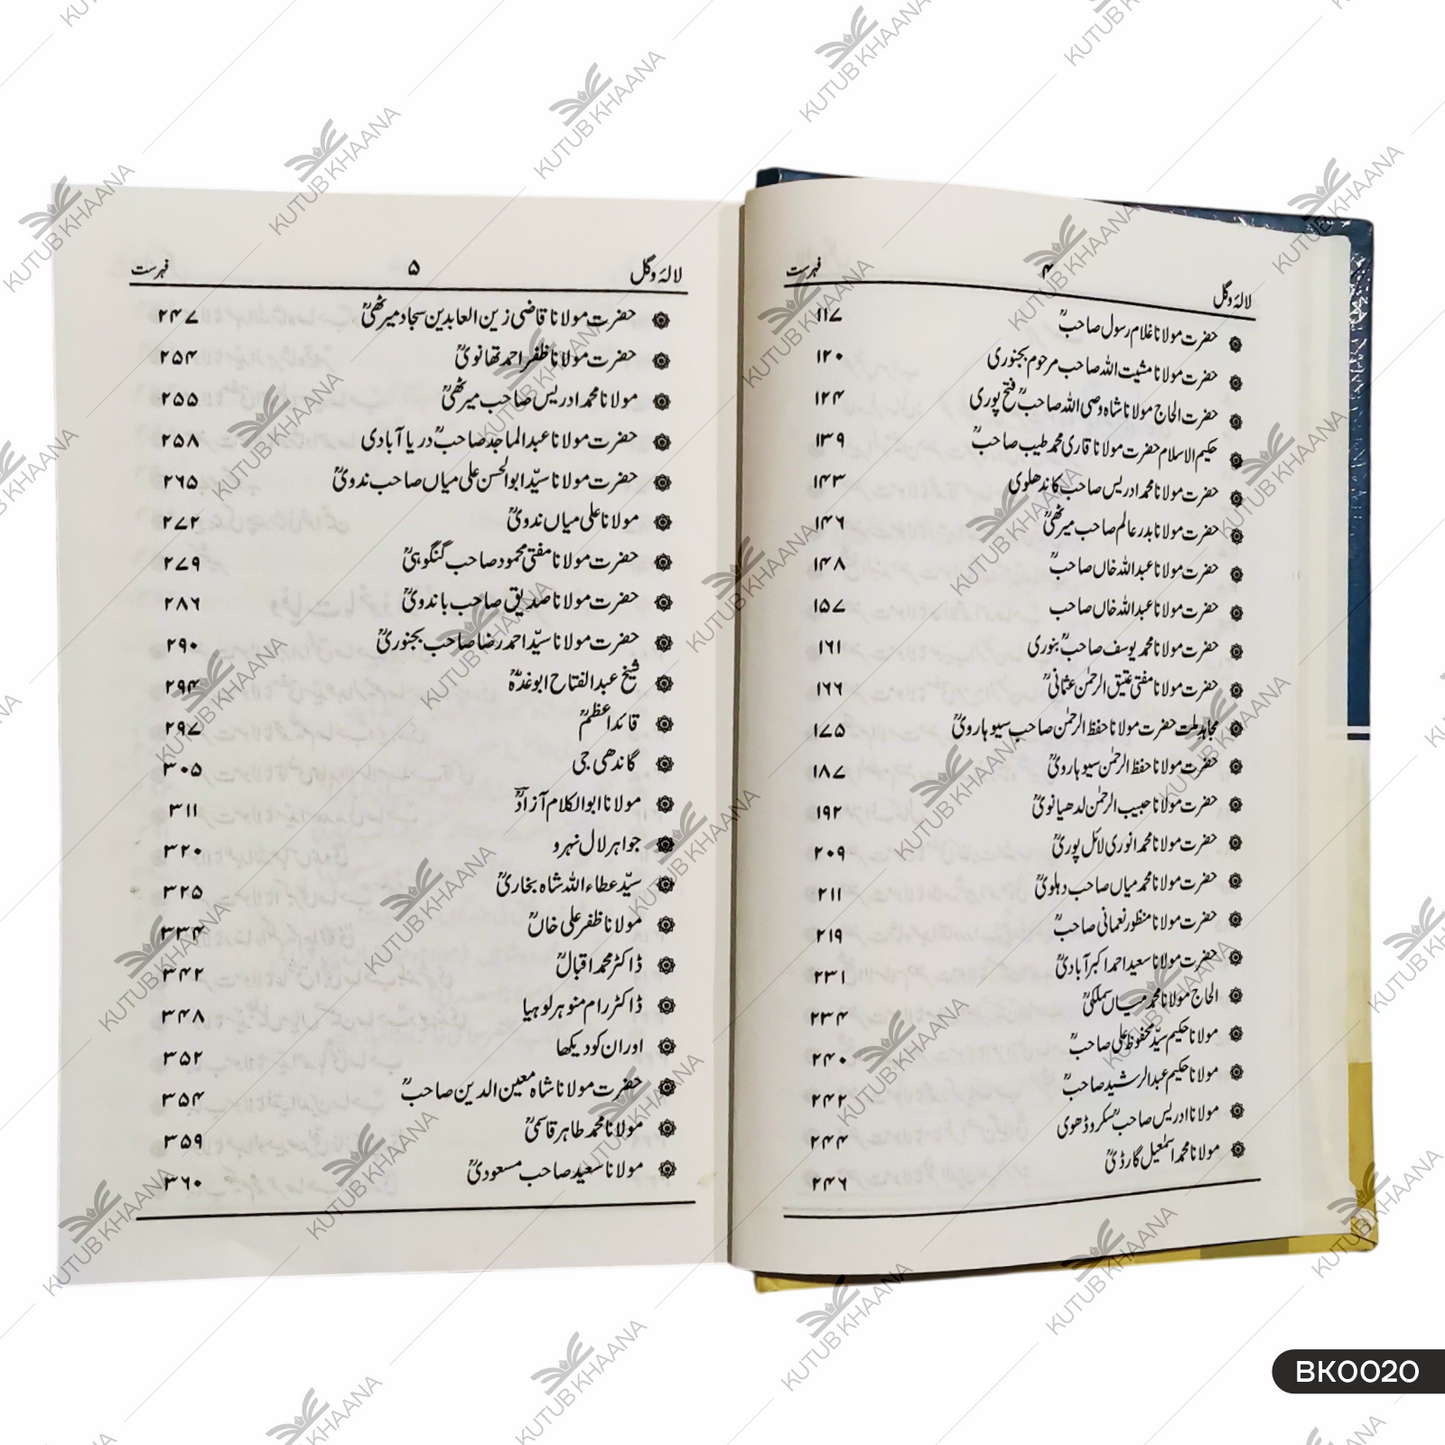 لالۂ و گل ۴ فہرست
حضرت مولانا غلام رسول صاحبؒ ۱۱۷
حضرت مولانا مشیت اللہ صاحب مرحوم بجنوری ۱۲۰
حضرت الحاج مولانا شاہ وصی اللہ صاحبؒ فتح پوری ۱۲۴
حکیم الاسلام حضرت مولانا قاری محمد طیب صاحبؒ ۱۳۹
حضرت مولانا محمد ادریس صاحب کاندھلوی ۱۴۳
حضرت مولانا بدر عالم صاحب میرٹھیؒ ۱۴۶
حضرت مولانا عبداللہ خاں صاحبؒ ۱۴۸
حضرت مولانا عبداللہ خاں صاحب ۱۵۷
حضرت مولانا محمد یوسف صاحبؒ بنوری ۱۶۱
حضرت مولانا مفتی عتیق الرحمٰن عثمانیؒ ۱۶۶
مجاہد ملت حضرت مولانا حفظ الرحمٰن صاحب سیوہارویؒ ۱۷۵
حضرت مولانا حفظ الرحمٰن سیوہارویؒ ۱۸۷
حضرت مولانا حبیب الرحمٰن لدھیانویؒ ۱۹۲
حضرت مولانا محمد انوری لائل پوریؒ ۲۰۹
حضرت مولانا محمد میاں صاحب دہلویؒ ۲۱۱
حضرت مولانا منظور نعمانی صاحبؒ ۲۱۹
حضرت مولانا سعید احمد اکبر آبادیؒ ۲۳۱
الحاج مولانا محمد میاں سملکیؒ ۲۳۴
مولانا حکیم سیّد محفوظ علی صاحبؒ ۲۴۰
مولانا حکیم عبدالرشید صاحبؒ ۲۴۲
مولانا ادریس صاحبؒ سکروڈھوی ۲۴۴
مولانا محمد اسمٰعیل گارڈیؒ ۲۴۶
لالۂ و گل ۵ فہرست
حضرت مولانا قاضی زین العابدین سجاد میرٹھیؒ ۲۴۷
حضرت مولانا ظفر احمد تھانویؒ ۲۵۴
مولانا محمد ادریس صاحب میرٹھیؒ ۲۵۵
حضرت مولانا عبدالماجد صاحبؒ دریا آبادی ۲۵۸
حضرت مولانا سیّد ابوالحسن علی میاں صاحب ندویؒ ۲۶۵
مولانا علی میاں ندویؒ ۲۷۲
حضرت مولانا مفتی محمود صاحب گنگوہیؒ ۲۷۹
حضرت مولانا صدیق صاحب باندویؒ ۲۸۶
حضرت مولانا سیّد احمد رضا صاحب بجنوریؒ ۲۹۰
شیخ عبدالفتاح ابوغدہؒ ۲۹۴
قائد اعظمؒ ۲۹۷
گاندھی جی ۳۰۵
مولانا ابوالکلام آزادؒ ۳۱۱
جواہر لال نہرو ۳۲۰
سیّد عطاء اللہ شاہ بخاریؒ ۳۲۵
مولانا ظفر علی خاںؒ ۳۳۴
ڈاکٹر محمد اقبالؒ ۳۴۲
ڈاکٹر رام منوہر لوہیا ۳۴۸
اور ان کو دیکھا ۳۵۲
حضرت مولانا شاہ معین الدین صاحبؒ ۳۵۴
مولانا محمد طاہر قاسمیؒ ۳۵۹
مولانا سعید صاحب مسعودیؒ ۳۶۰
KUTUB KHAANA
BK0020